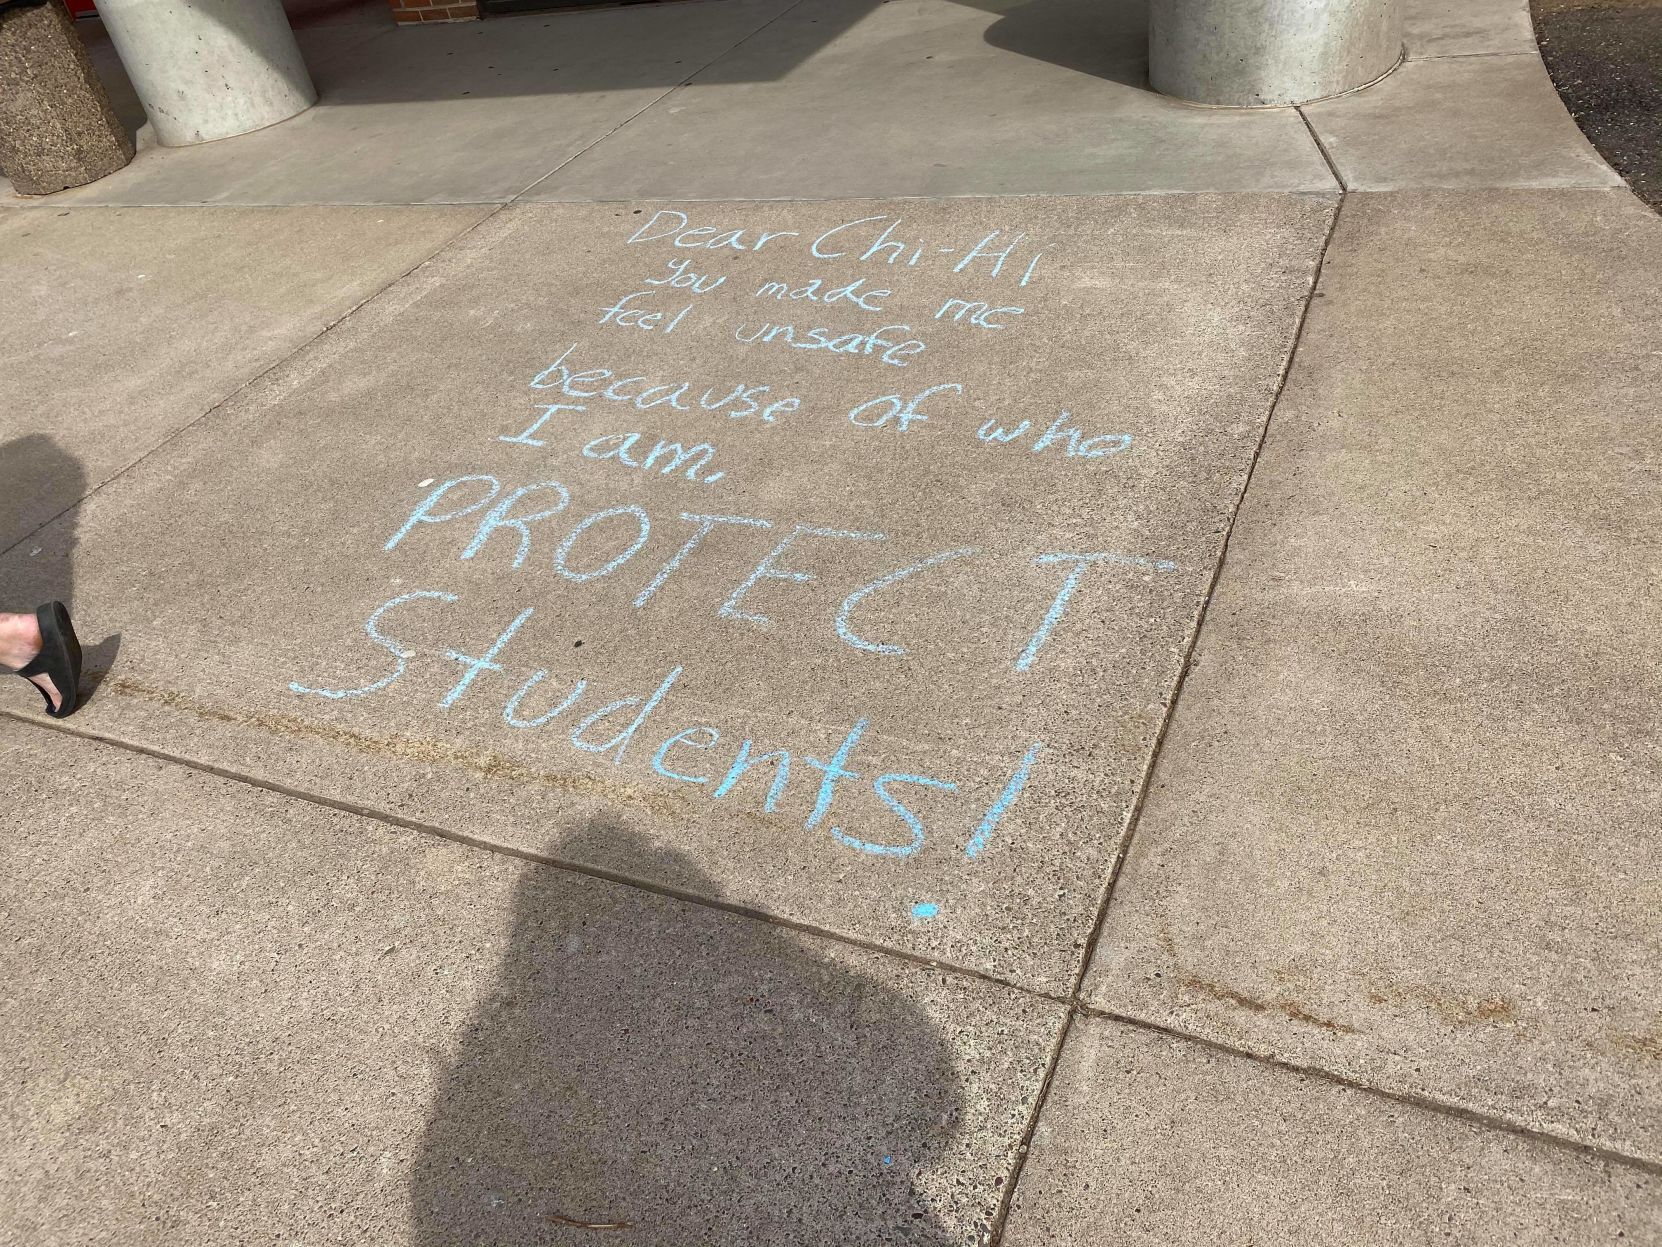 Dear Chi-Hi
You made me
feel unsafe
because of who
I am.
PROTECT
Students!